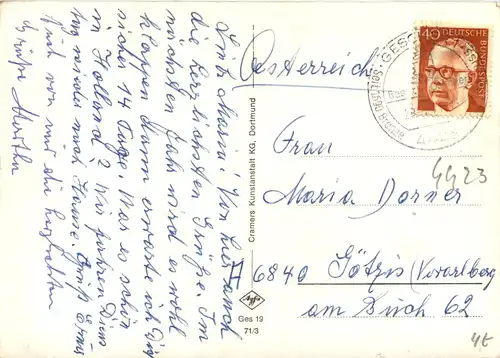 Liebe Maria! Von hier auch
die herzlichsten Grüße. Im
nächsten Jahr wird es wohl
klappen dann erwarte ich Dich
sicher 14 Tage. War es schön
in Holland? Wir fahren Diens
tag wieder nach Hause. Grüß Erns
auch von mir die herzlichsten
Grüße Martha
Cramers Kunstanstalt KG, Dortmund
Agfa
Ges 19
71/3
40
DEUTSCHE
BUNDESPOST
Oesterreich
Frau
Maria Dorner
4423
A 6840 Götzis (Vorarlberg
am Buch 62
4t